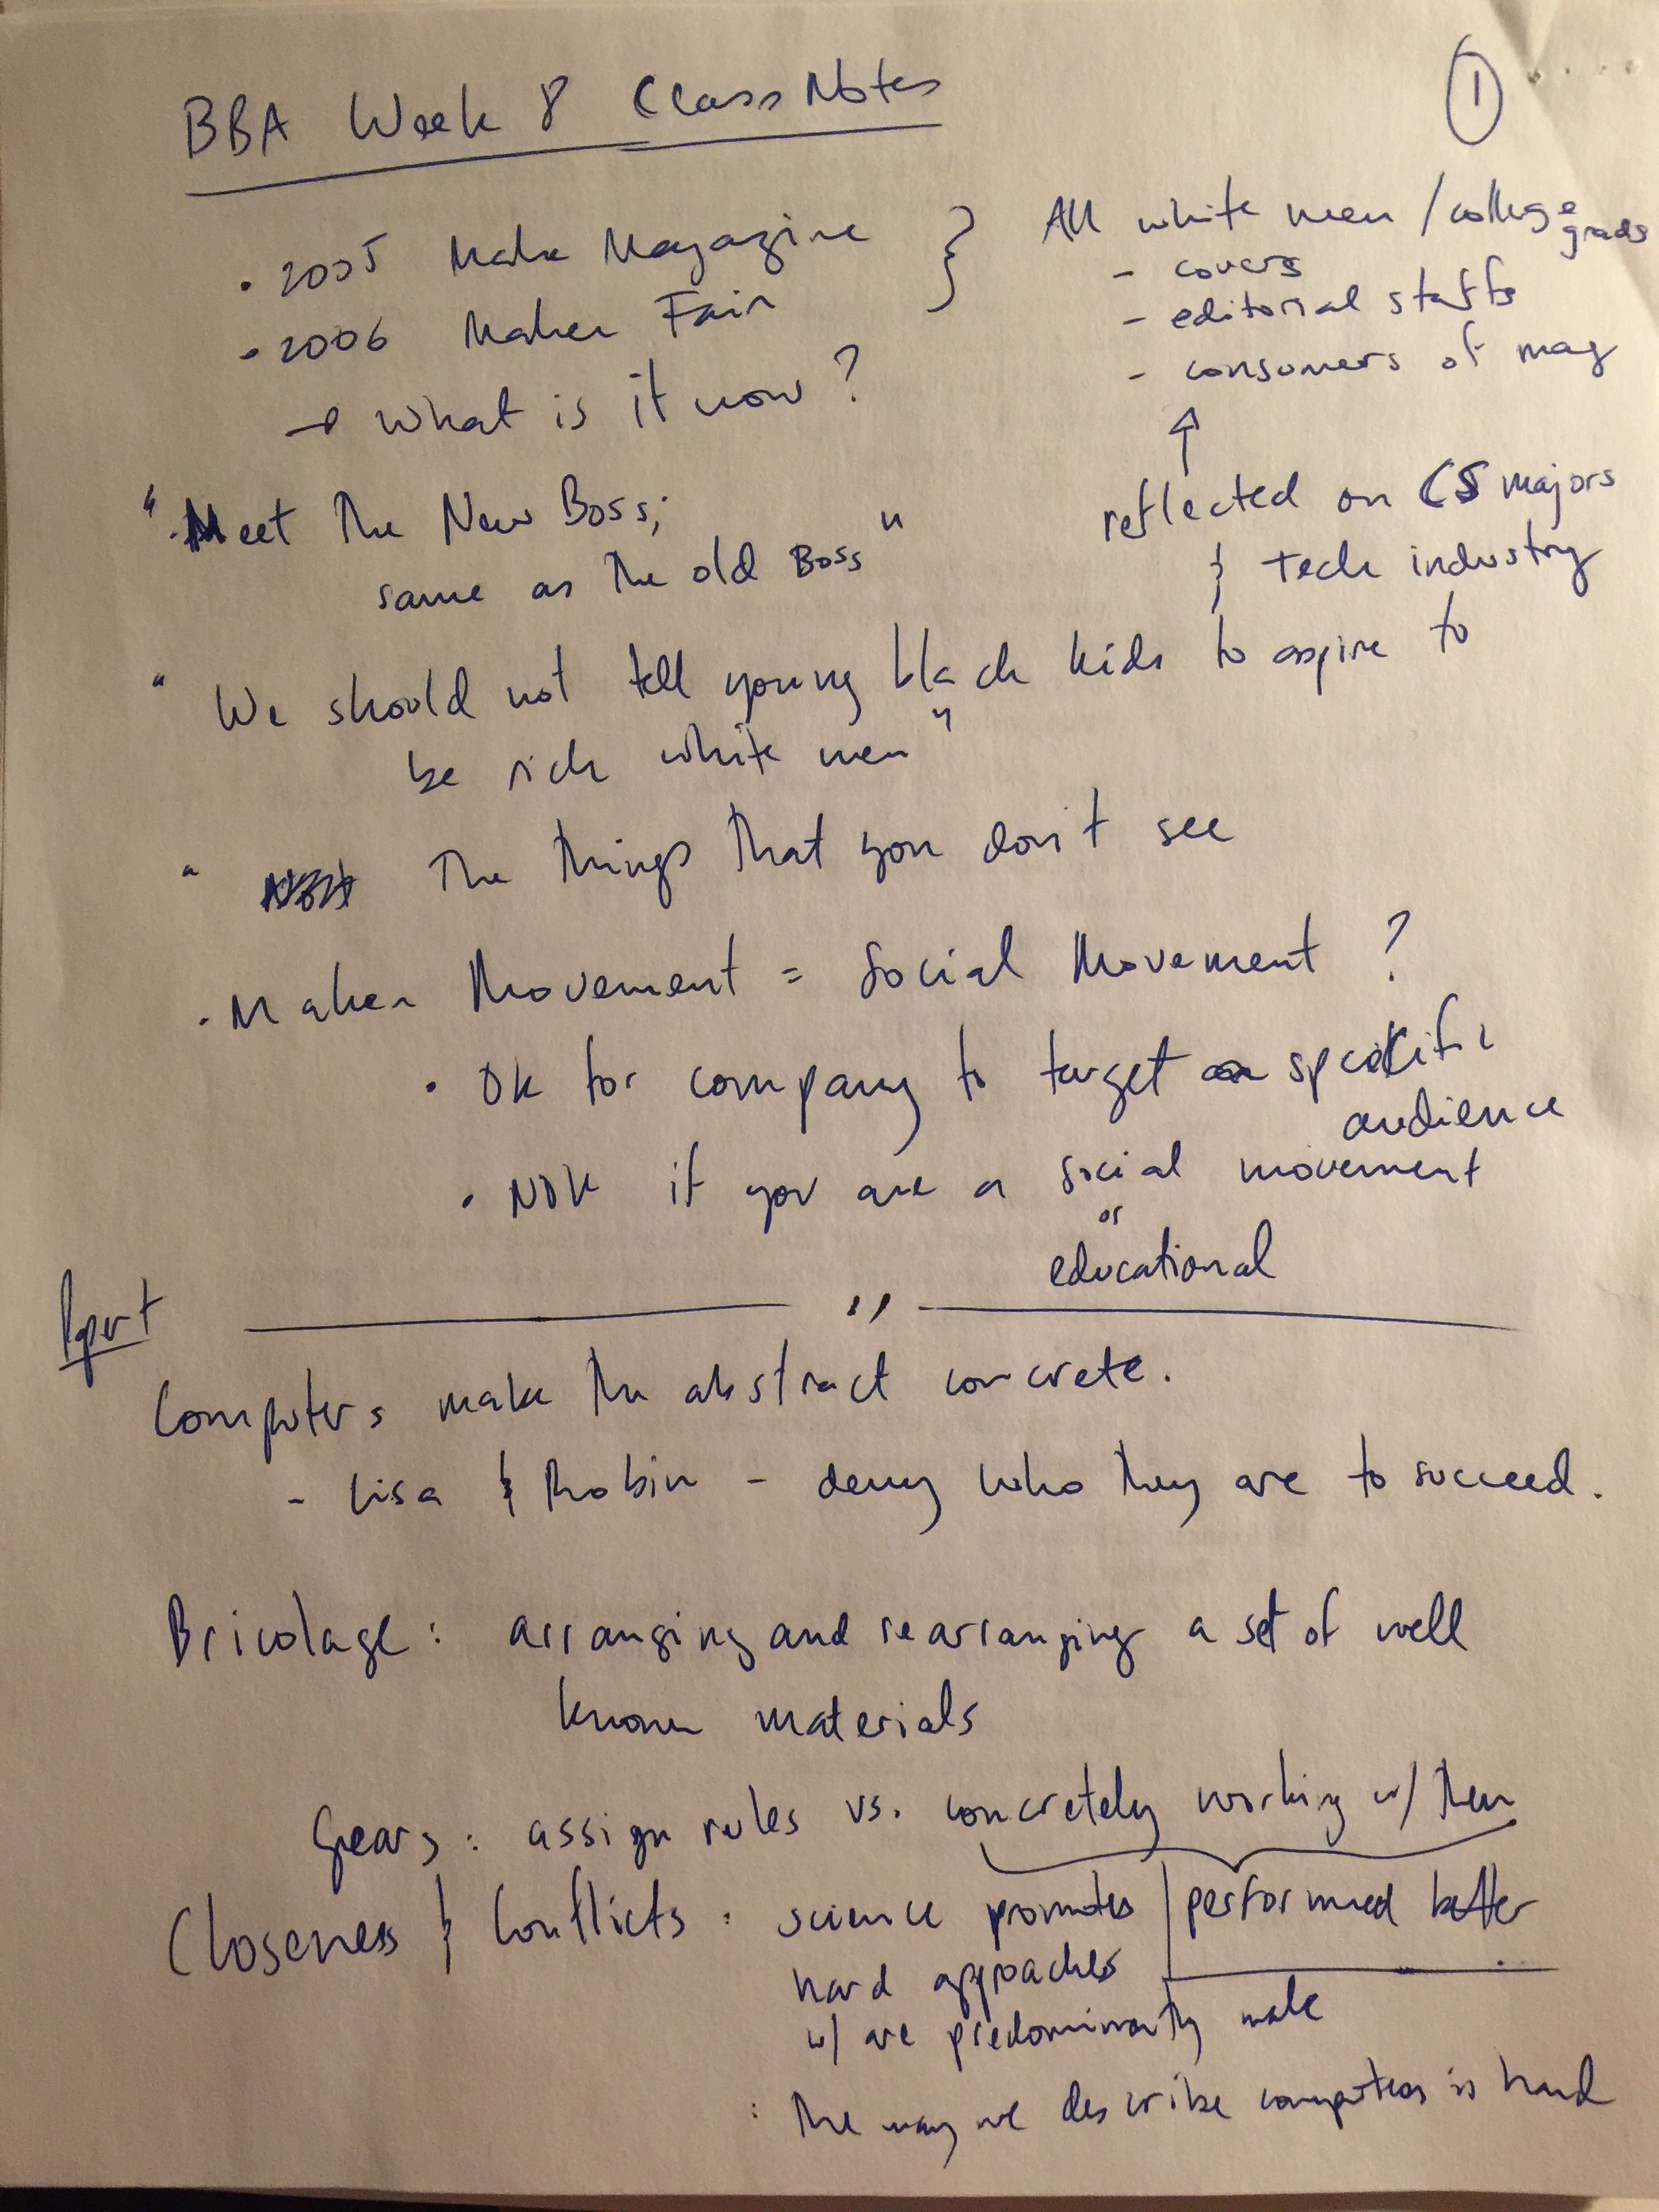 BBA Week 8 Class Notes
①
· 2005 Make Magazine
· 2006 Maker Fair
→ What is it now?
} All white men / college grads
- covers
- editorial staffs
- consumers of mag
↑
reflected on CS majors
& tech industry
"Meet The New Boss;
same as the old Boss"
"We should not tell young black kids to aspire to
be rich white men"
" The things that you don't see
· Maker Movement = Social Movement ?
· OK for company to target specific
audience
· NOK if you are a social movement
or
educational
"
Computers make the abstract concrete.
- Lisa & Robin - deny who they are to succeed.
Bricolage: arranging and rearranging a set of well
known materials
Gears: assign rules vs. concretely working w/ them
performed better
Closeness & Conflicts: science promotes
hard approaches
w/ are predominantly male
: The way we describe computers is hard